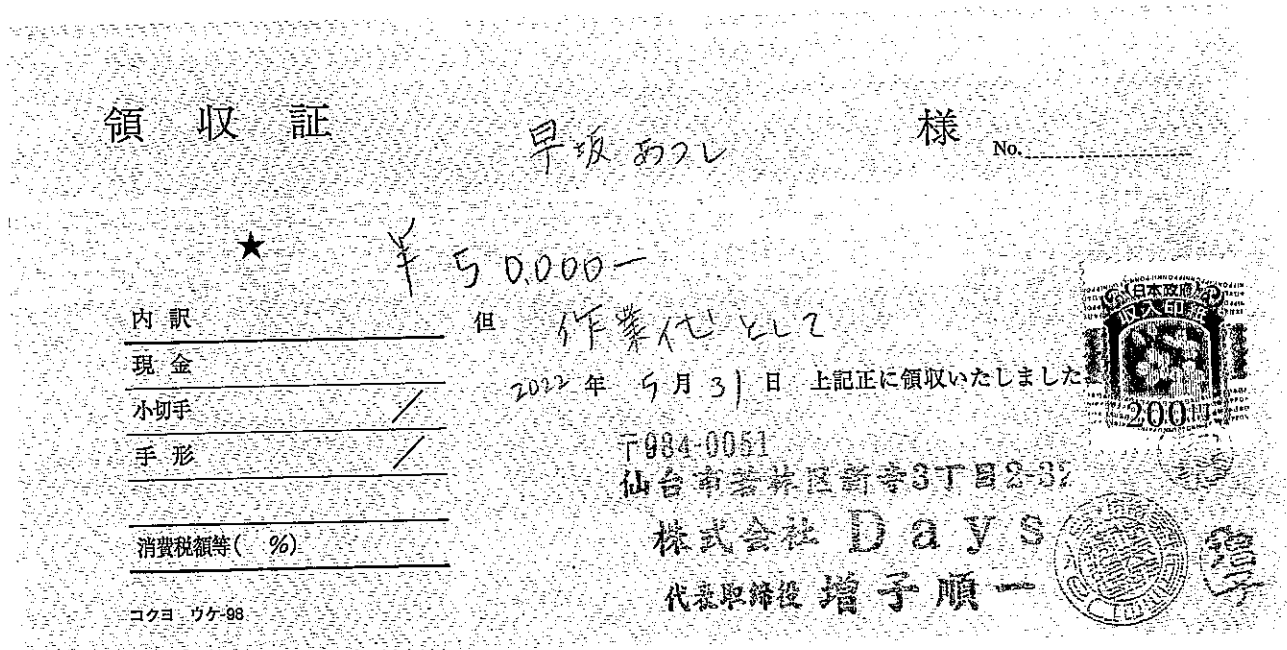 領収証
早坂 あつし 様
No.
★ ¥50,000-
内訳
現金
小切手
手形
消費税額等( %)
コクヨ ウケ-98
但 作業代として
2022年 5月31日 上記正に領収いたしました
日本政府
収入印紙
200円
〒984-0051
仙台市若林区新寺3丁目2-32
株式会社 Days
代表取締役 増子順一
増子